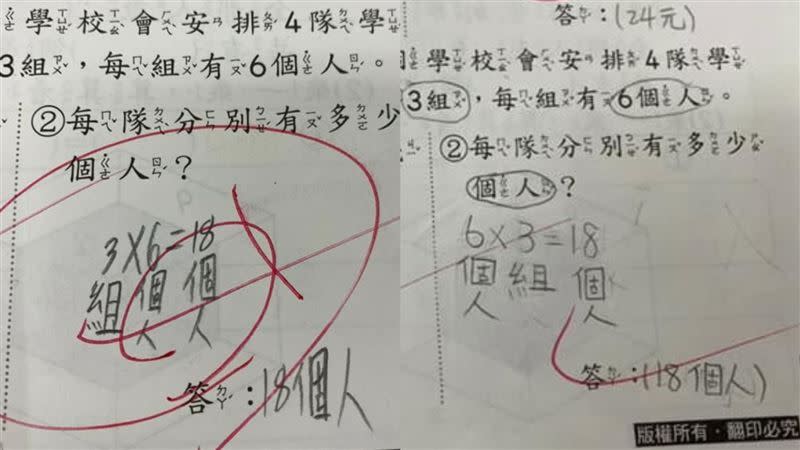 學校會安排4隊學
3組，每組有6個人。
②每隊分別有多少
個人？
3×6=18
組 個人 個人
答：18個人
答：(24元)
學校會安排4隊學
3組，每組有6個人。
②每隊分別有多少
個人？
6×3=18
個人 組 個人
答：(18個人)
版權所有・翻印必究